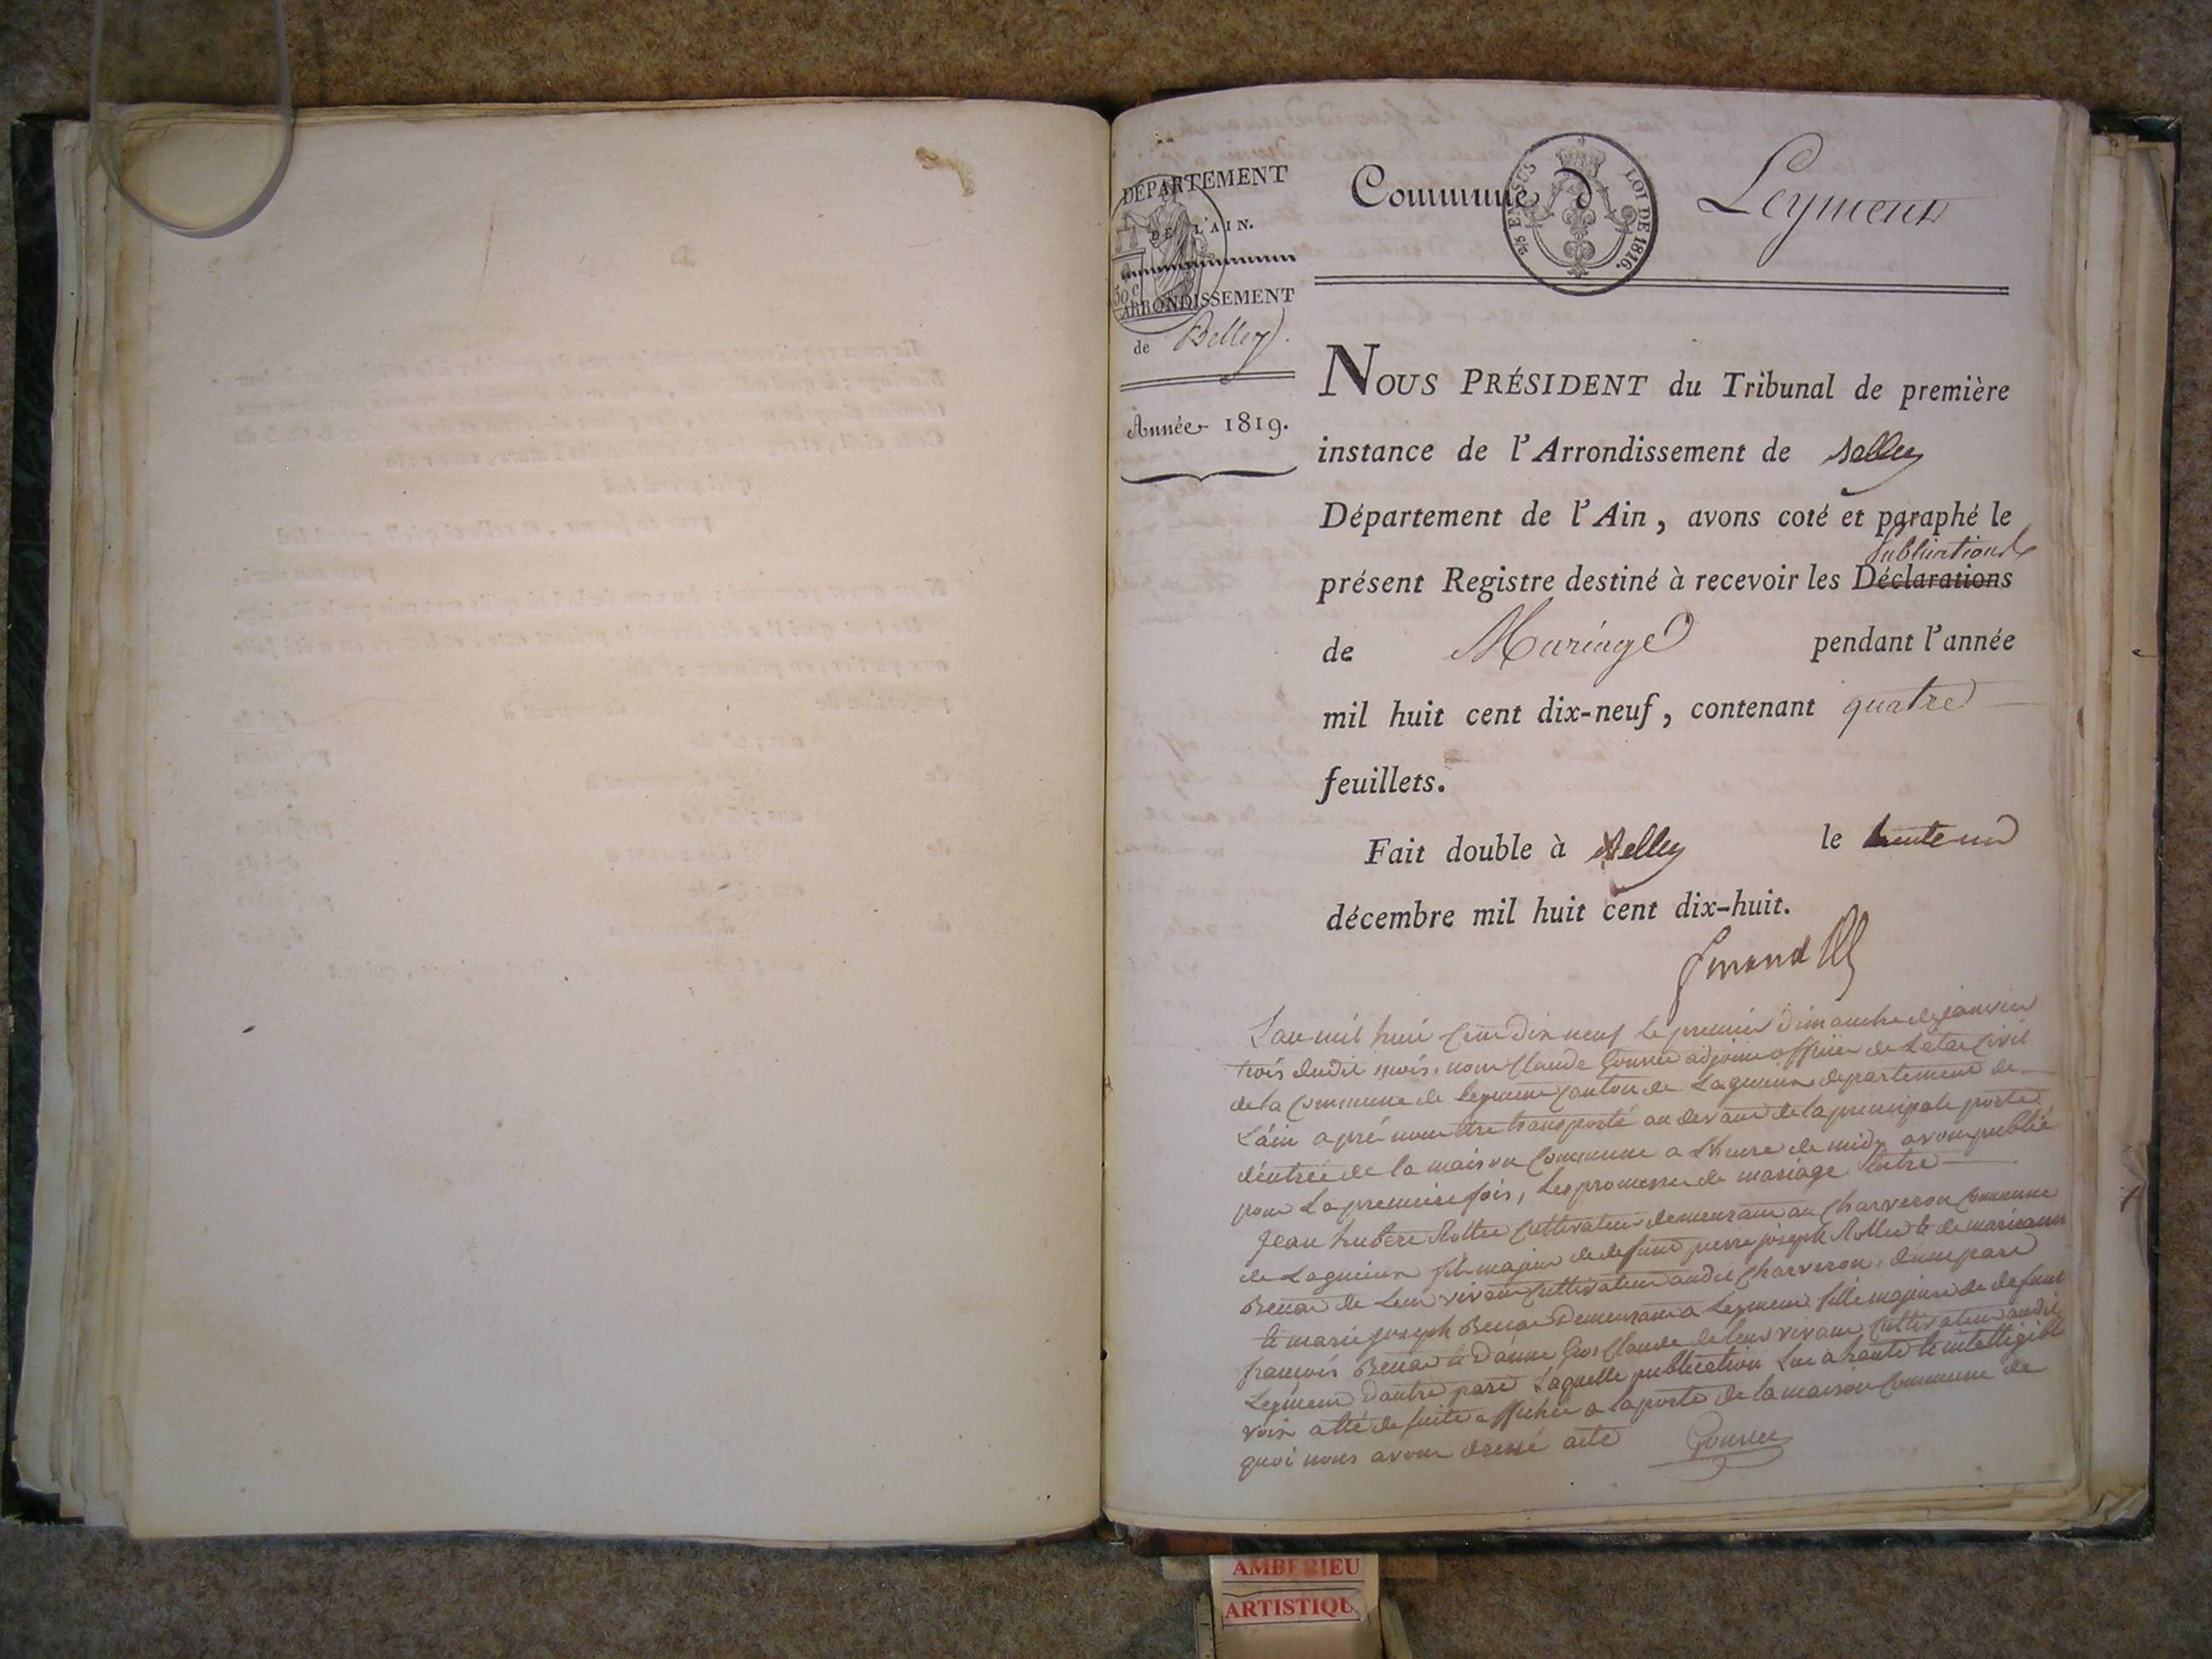 DÉPARTEMENT
DE L'AIN.
30 c
ARRONDISSEMENT
de Belley.
Année 1819.
Commune d Leyment
2/5 EN SUS
LOI DE 1816.
NOUS PRÉSIDENT du Tribunal de première
instance de l'Arrondissement de Belley
Département de l'Ain, avons coté et paraphé le
Publications
présent Registre destiné à recevoir les Déclarations
de Mariage pendant l'année
mil huit cent dix-neuf, contenant quatre
feuillets.
Fait double à Belley le trente un
décembre mil huit cent dix-huit.
L'an mil huit cent dix neuf le premier Dimanche de janvier
trois dudit mois, nous Claude adjoint officier de Letat Civil
de la Commune de Leyment Canton de Lagnieux departement de
L'ain apré nous etre transporté au devant de la principale porte
d'entrée de la maison Commune a L'heure de midy avons publié
pour La premiere fois, Les promesses de mariage Entre
Jean hubert Cultivateur demeurant au Charveron Commune
de Lagnieux fils majeur de defunt pierre joseph et de marieanne
Benar de Leur vivant Cultivateur audit Charveron, d'une part
Et marie joseph Benar Demeurant a Leyment fille majeure de defunt
françois Benar et D'anne Gros Claude de leur vivant Cultivateur audit
Leyment D'autre part Laquelle publication Lue a haute Et intelligible
voix a été de suite affichée a La porte de la maison Commune de
quoi nous avons dressé acte
AMBERIEU
ARTISTIQU